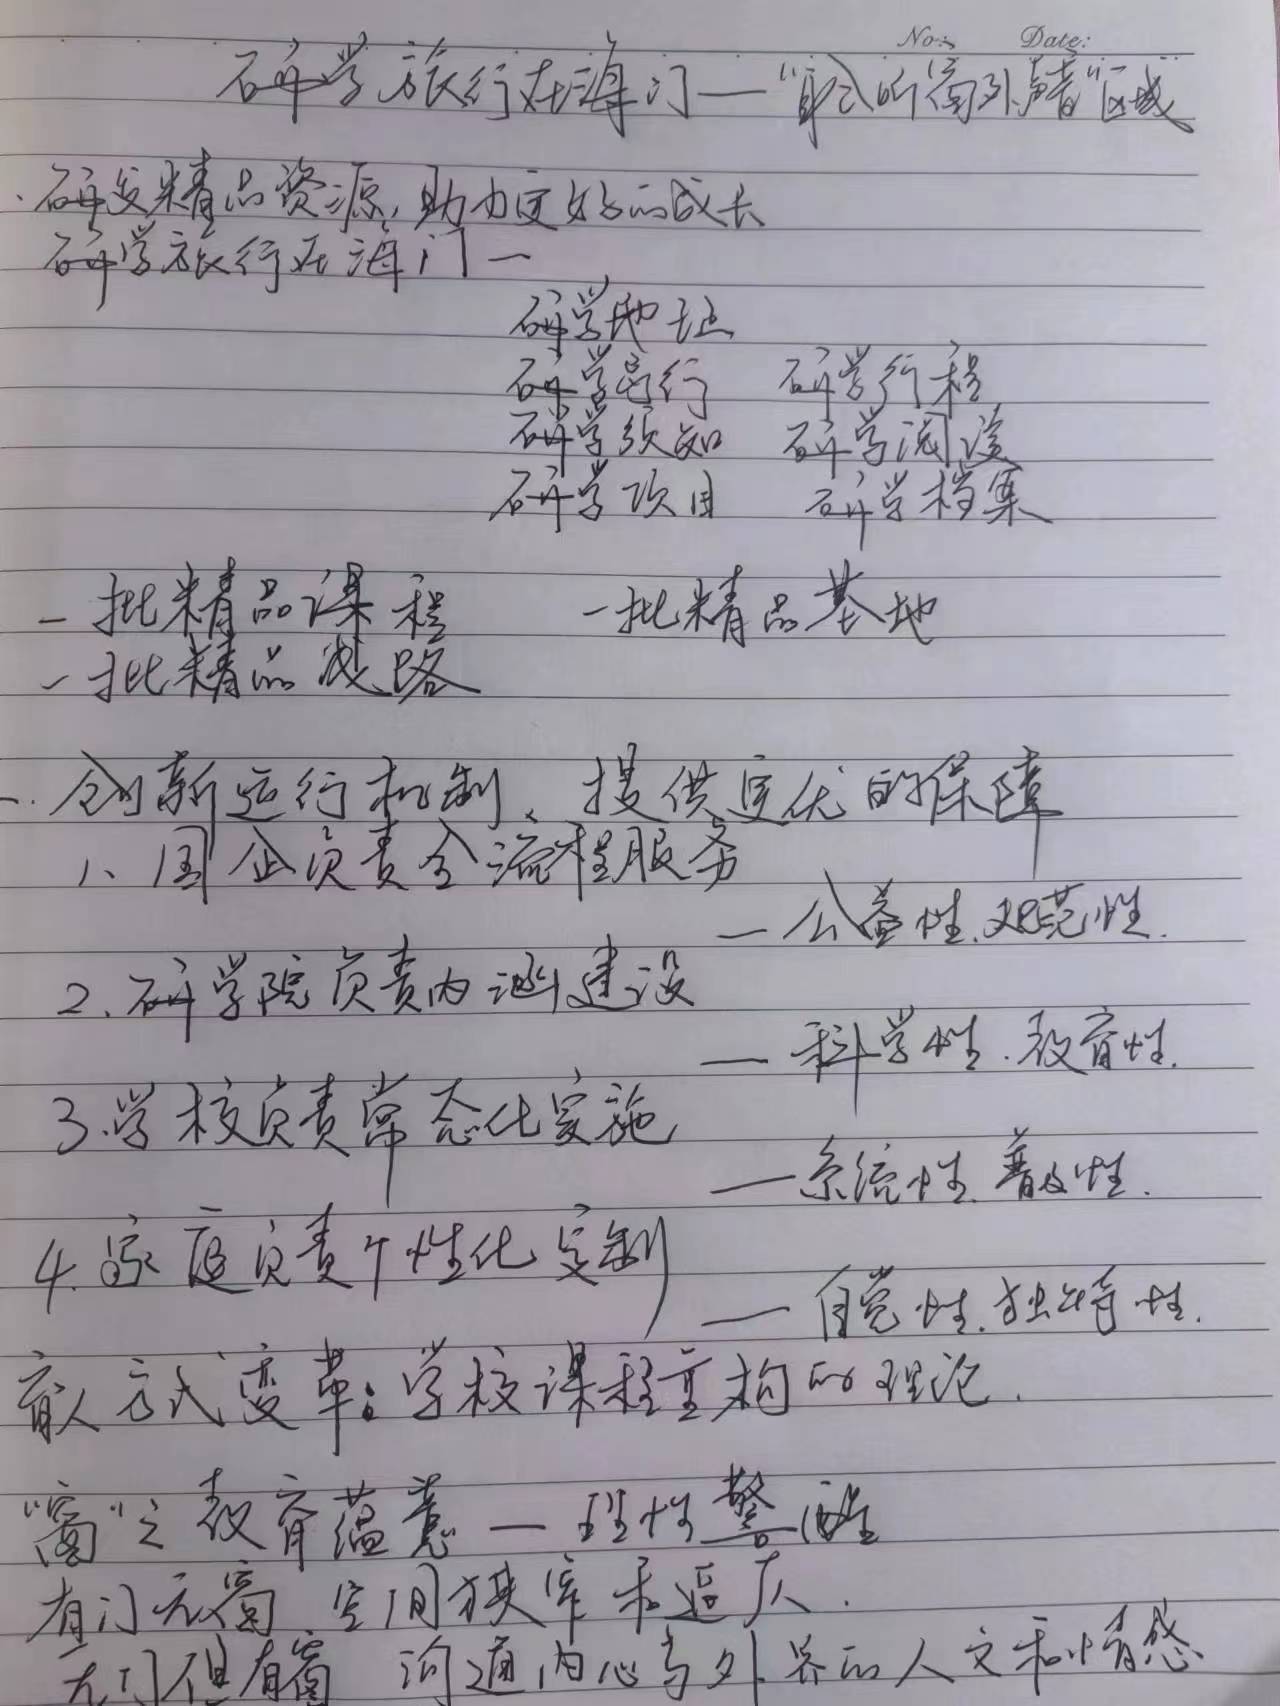 No: Date:
研学旅行在海门—“聆听窗外声音”区域
研发精品资源，助力更好的成长
研学旅行在海门—
研学地址
研学导行 研学行程
研学须知 研学阅读
研学项目 研学档集
一批精品课程 一批精品基地
一批精品线路
二.创新运行机制、提供更优的保障
1、国企负责全流程服务
—公益性.规范性.
2.研学院负责内涵建设
—科学性.教育性.
3.学校负责常态化实施
—系统性.普及性.
4.家庭负责个性化定制
—自觉性.独特性.
育人方式变革：学校课程重构的理论.
“窗”之教育蕴意—理性警醒
有门无窗 空间狭窄和逼仄.
无门但有窗 沟通内心与外界的人文和情感